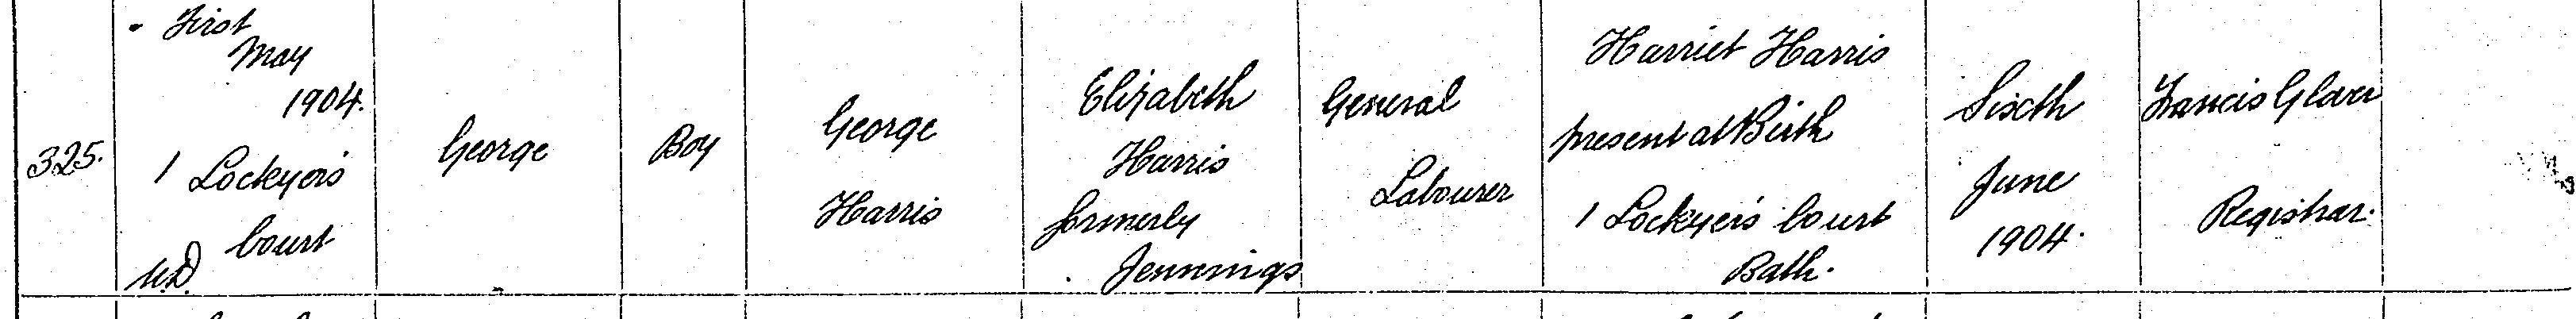 325.
First
May
1904.
1 Lockyer's
Court
U.D.
George
Boy
George
Harris
Elizabeth
Harris
formerly
Jennings
General
Labourer
Harriet Harris
present at Birth
1 Lockyer's Court
Bath.
Sixth
June
1904.
Francis Glover
Registrar.